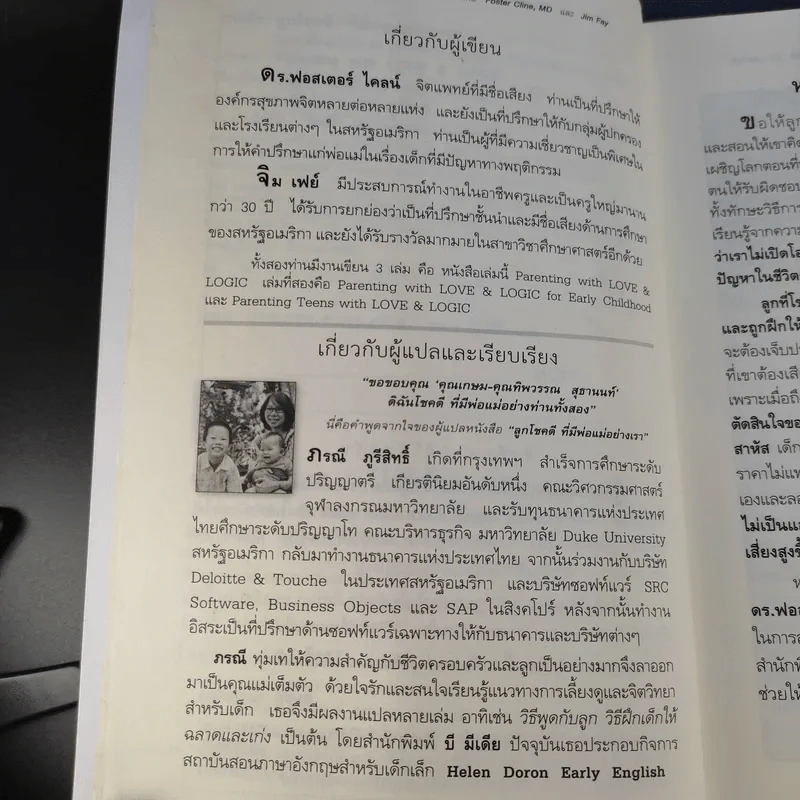 Foster Cline, MD และ Jim Fay
เกี่ยวกับผู้เขียน
ดร.ฟอสเตอร์ ไคลน์ จิตแพทย์ที่มีชื่อเสียง ท่านเป็นที่ปรึกษาให้
องค์กรสุขภาพจิตหลายต่อหลายแห่ง และยังเป็นที่ปรึกษาให้กับกลุ่มผู้ปกครอง
และโรงเรียนต่างๆ ในสหรัฐอเมริกา ท่านเป็นผู้ที่มีความเชี่ยวชาญเป็นพิเศษใน
การให้คำปรึกษาแก่พ่อแม่ในเรื่องเด็กที่มีปัญหาทางพฤติกรรม
จิม เฟย์ มีประสบการณ์ทำงานในอาชีพครูและเป็นครูใหญ่มานาน
กว่า 30 ปี ได้รับการยกย่องว่าเป็นที่ปรึกษาชั้นนำและมีชื่อเสียงด้านการศึกษา
ของสหรัฐอเมริกา และยังได้รับรางวัลมากมายในสาขาวิชาศึกษาศาสตร์อีกด้วย
ทั้งสองท่านมีงานเขียน 3 เล่ม คือ หนังสือเล่มนี้ Parenting with LOVE &
LOGIC เล่มที่สองคือ Parenting with LOVE & LOGIC for Early Childhood
และ Parenting Teens with LOVE & LOGIC
เกี่ยวกับผู้แปลและเรียบเรียง
“ขอขอบคุณ ‘คุณเกษม-คุณทิพวรรณ สุธานนท์’
ดิฉันโชคดี ที่มีพ่อแม่อย่างท่านทั้งสอง”
นี่คือคำพูดจากใจของผู้แปลหนังสือ “ลูกโชคดี ที่มีพ่อแม่อย่างเรา”
ภรณี ภูรีสิทธิ์ เกิดที่กรุงเทพฯ สำเร็จการศึกษาระดับ
ปริญญาตรี เกียรตินิยมอันดับหนึ่ง คณะวิศวกรรมศาสตร์
จุฬาลงกรณมหาวิทยาลัย และรับทุนธนาคารแห่งประเทศ
ไทยศึกษาระดับปริญญาโท คณะบริหารธุรกิจ มหาวิทยาลัย Duke University
สหรัฐอเมริกา กลับมาทำงานธนาคารแห่งประเทศไทย จากนั้นร่วมงานกับบริษัท
Deloitte & Touche ในประเทศสหรัฐอเมริกา และบริษัทซอฟท์แวร์ SRC
Software, Business Objects และ SAP ในสิงคโปร์ หลังจากนั้นทำงาน
อิสระเป็นที่ปรึกษาด้านซอฟท์แวร์เฉพาะทางให้กับธนาคารและบริษัทต่างๆ
ภรณี ทุ่มเทให้ความสำคัญกับชีวิตครอบครัวและลูกเป็นอย่างมากจึงลาออก
มาเป็นคุณแม่เต็มตัว ด้วยใจรักและสนใจเรียนรู้แนวทางการเลี้ยงดูและจิตวิทยา
สำหรับเด็ก เธอจึงมีผลงานแปลหลายเล่ม อาทิเช่น วิธีพูดกับลูก วิธีฝึกเด็กให้
ฉลาดและเก่ง เป็นต้น โดยสำนักพิมพ์ บี มีเดีย ปัจจุบันเธอประกอบกิจการ
สถาบันสอนภาษาอังกฤษสำหรับเด็กเล็ก Helen Doron Early English
ขอให้ลูก
และสอนให้เขาคิด
เผชิญโลกตอนที่
ตนให้รับผิดชอบ
ทั้งทักษะวิธีการ
เรียนรู้จากความ
ว่าเราไม่เปิดโอ
ปัญหาในชีวิต
ลูกที่โ
และถูกฝึกให้
จะต้องเจ็บป
ที่เขาต้องเสี
เพราะเมื่อถึ
ตัดสินใจขอ
สาหัส เด็ก
ราคาไม่แพ
เองและลอ
ไม่เป็นแ
เสี่ยงสูงขึ้
ดร.ฟอ
ในการส
สำนักพิ
ช่วยให้